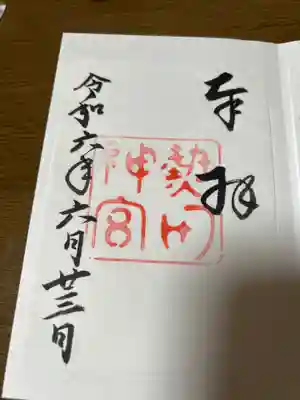 奉拝
熱田神宮
令和六年六月廿三日